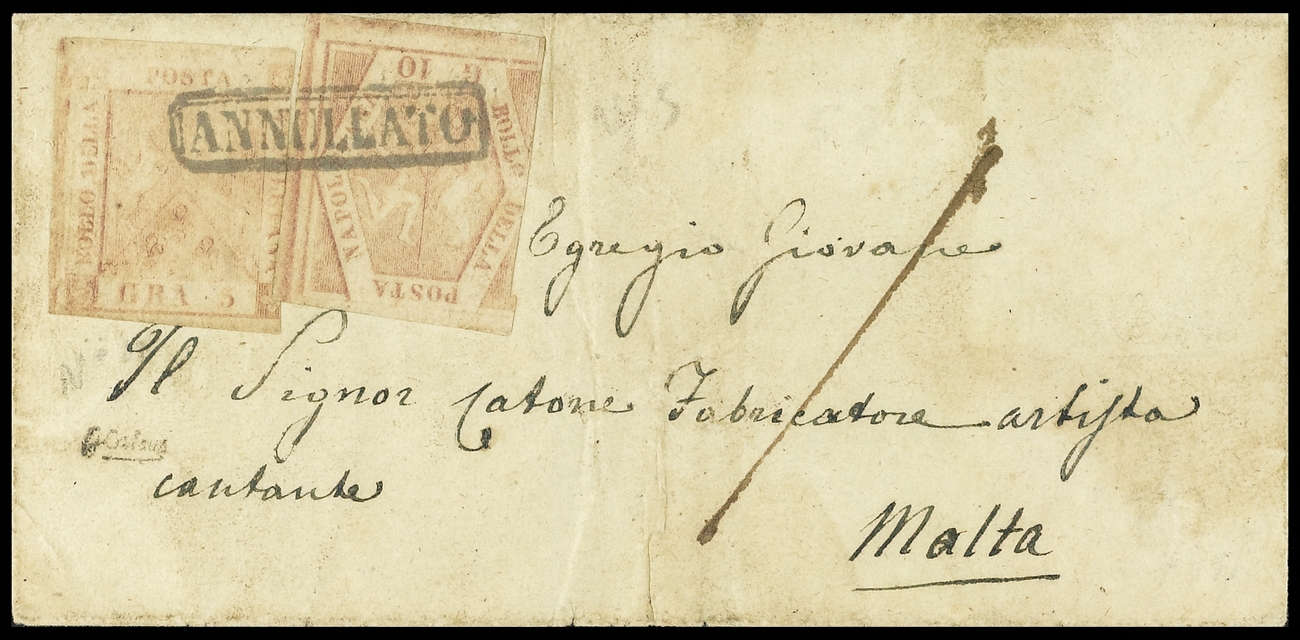 POSTA
BOLLO DELLA
GRA 5
G. 10
BOLLO DELLA
POSTA
ANNULLATO
Egregio Giovane
Il Signor Catone Fabricatore artista
cantante
Malta